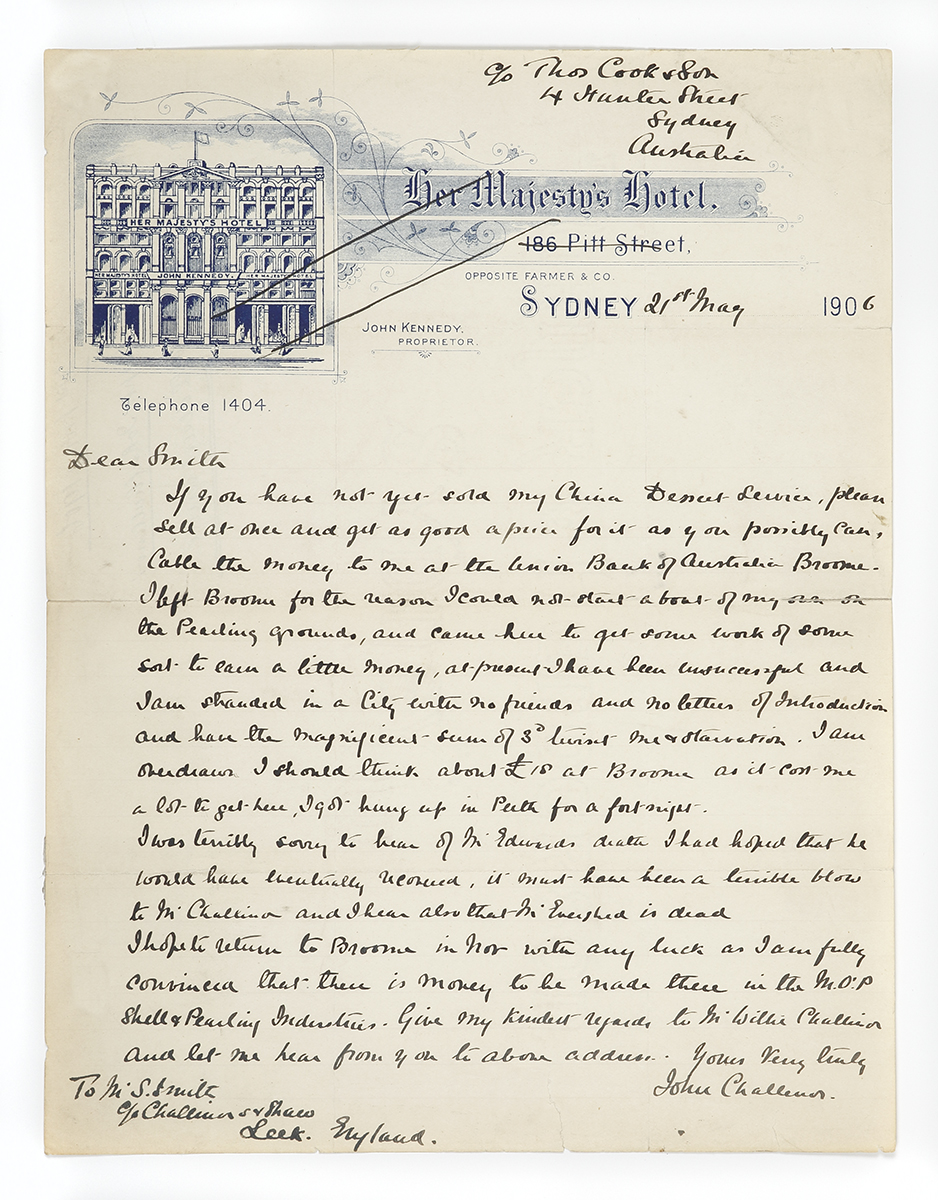 c/o Thos Cook & Son
4 Hunter Street
Sydney
Australia
Her Majesty's Hotel.
186 Pitt Street,
OPPOSITE FARMER & CO.
SYDNEY 21st May 1906
HER MAJESTY'S HOTEL
HER MAJESTY'S HOTEL JOHN KENNEDY. HER MAJESTY'S HOTEL
JOHN KENNEDY.
PROPRIETOR.
Telephone 1404.
Dear Smith
If you have not yet sold my China Dessert Service, please
sell at once and get as good a price for it as you possibly can,
Cable the money to me at the Union Bank of Australia Broome.
I left Broome for the reason I could not start a boat of my own on
the Pearling grounds, and came here to get some work of some
sort to earn a little money, at present I have been unsuccessful and
I am stranded in a City with no friends and no letters of Introduction
and have the magnificent sum of 3d twixt me & starvation. I am
overdrawn I should think about £18 at Broome as it cost me
a lot to get here, I got hung up in Perth for a fortnight.
I was terribly sorry to hear of Mr Edwards death I had hoped that he
would have eventually recovered, it must have been a terrible blow
to Mr Challinor and I hear also that Mr Evershed is dead
I hope to return to Broome in Nov with any luck as I am fully
convinced that there is money to be made there in the M.O.P
Shell & Pearling Industries. Give my kindest regards to Mr Willie Challinor
and let me hear from you to above address. Yours Very truly
John Challinor.
To Mr S. Smith
c/o Challinors & Shaw
Leek. England.